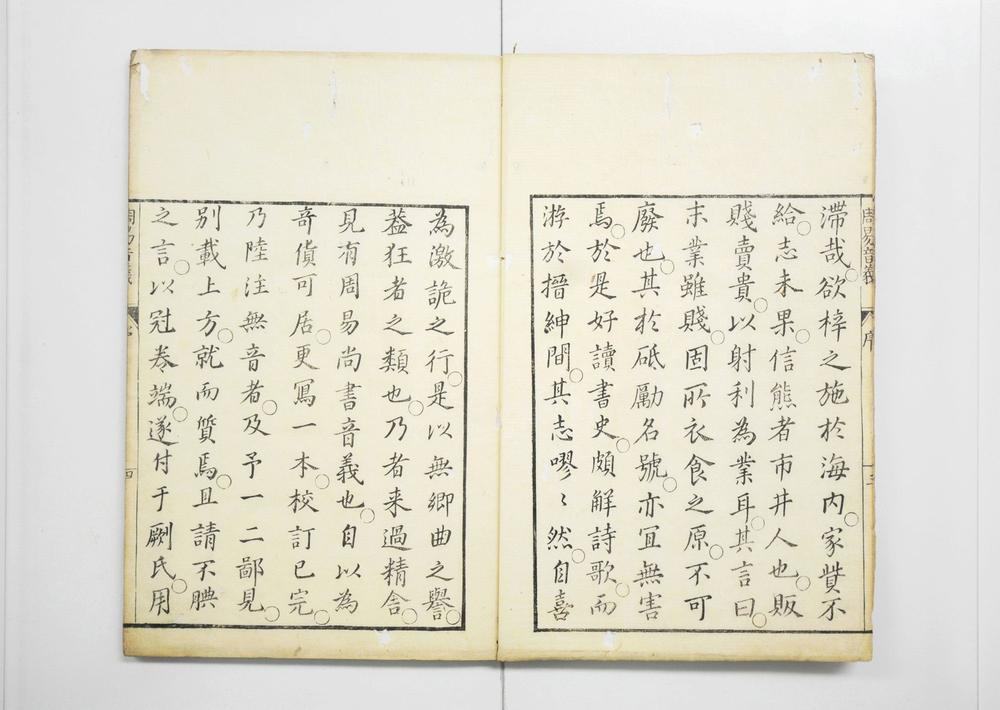 周易音義
序
三
滯哉。欲梓之施於海内。家貲不
給。志未果。信熊者市井人也。販
賤賣貴。以射利為業耳。其言曰。
末業雖賤。固所衣食之原。不可
廢也。其於砥勵名號。亦宜無害
焉。於是好讀書史。頗解詩歌。而
游於搢紳間。其志嘐〻然。自喜
為激詭之行。是以無鄉曲之譽。
蓋狂者之類也。乃者来過精舍。
見有周易尚書音義也。自以為
奇貨可居。更寫一本。校訂已完。
乃陸注無音者。及予一二鄙見。
別載上方。就而質焉。且請不腆
之言。以冠卷端。遂付于劂氏。用
四